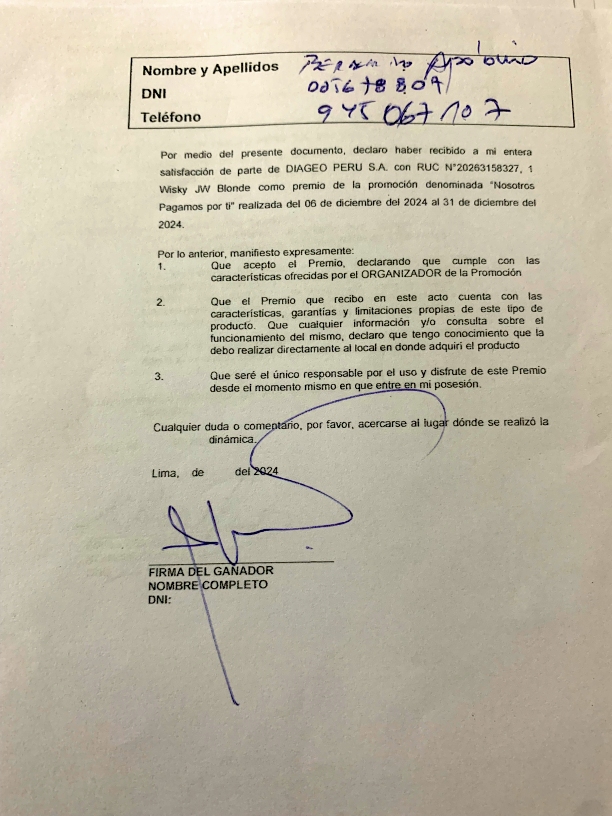 Nombre y Apellidos Apolonio
DNI
Teléfono 945 067 107
Por medio del presente documento, declaro haber recibido a mi entera
satisfacción de parte de DIAGEO PERU S.A. con RUC N°20263158327, 1
Wisky JW Blonde como premio de la promoción denominada "Nosotros
Pagamos por ti" realizada del 06 de diciembre del 2024 al 31 de diciembre del
2024.
Por lo anterior, manifiesto expresamente:
1. Que acepto el Premio, declarando que cumple con las
características ofrecidas por el ORGANIZADOR de la Promoción
2. Que el Premio que recibo en este acto cuenta con las
características, garantías y limitaciones propias de este tipo de
producto. Que cualquier información y/o consulta sobre el
funcionamiento del mismo, declaro que tengo conocimiento que la
debo realizar directamente al local en donde adquirí el producto
3. Que seré el único responsable por el uso y disfrute de este Premio
desde el momento mismo en que entre en mi posesión.
Cualquier duda o comentario, por favor, acercarse al lugar dónde se realizó la
dinámica.
Lima, de del 2024
FIRMA DEL GANADOR
NOMBRE COMPLETO
DNI: